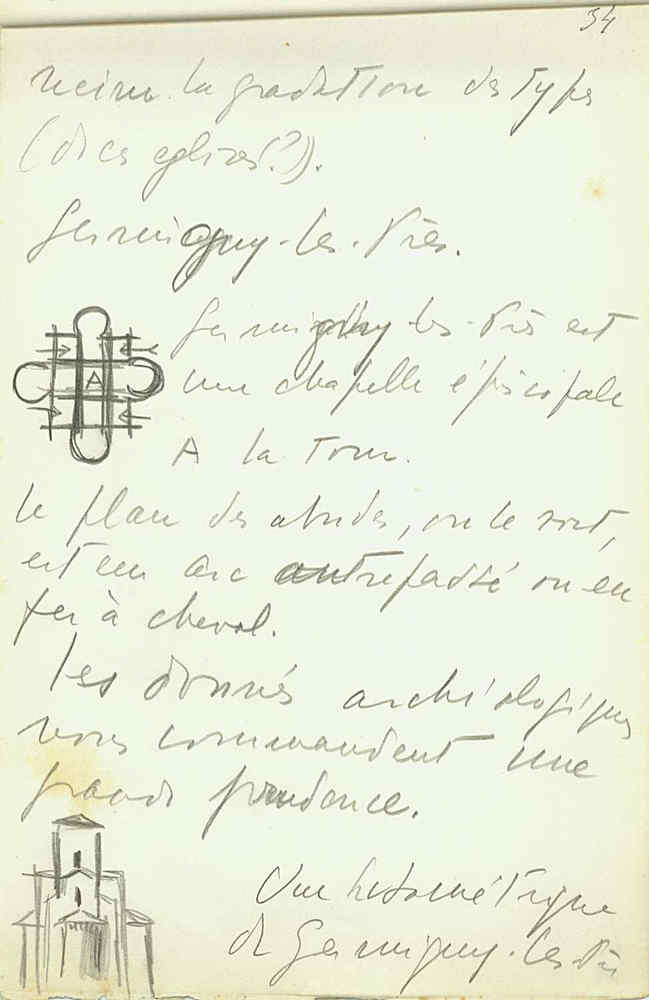 34
la gradation des types
(des eglises?)).
Germigny-les-Près.
Germigny-les-Près est
une chapelle épiscopale
A la Tour.
le plan des absides, on le voit,
est en arc outrepassé ou en
fer à cheval.
Les donnés archéologiques
nous commandent une
grande prudence.
A
Vue isométrique
de Germigny-les-Près